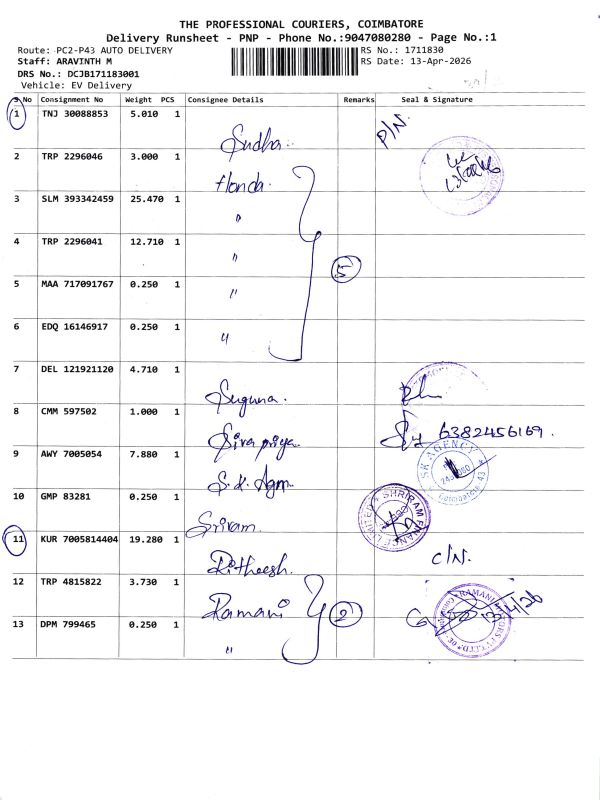 THE PROFESSIONAL COURIERS, COIMBATORE
Delivery Runsheet - PNP - Phone No.:9047080280 - Page No.:1
Route: PC2-P43 AUTO DELIVERY
RS No.: 1711830
Staff: ARAVINTH M
RS Date: 13-Apr-2026
DRS No.: DCJB171183001
Vehicle: EV Delivery
S No Consignment No Weight PCS Consignee Details Remarks Seal & Signature
1 TNJ 30088853 5.010 1 Sudha P/N.
2 TRP 2296046 3.000 1 Honda.
3 SLM 393342459 25.470 1 "
4 TRP 2296041 12.710 1 " 5
5 MAA 717091767 0.250 1 "
6 EDQ 16146917 0.250 1 "
7 DEL 121921120 4.710 1 Suguna.
8 CMM 597502 1.000 1 Sivapriya 6382456169.
9 AWY 7005054 7.880 1 S.K. Agm. SK AGENCY
10 GMP 83281 0.250 1 Sriram. SHRIRAM FINANCE LIMITED
11 KUR 7005814404 19.280 1 Ritheesh. C/N.
12 TRP 4815822 3.730 1 Ramani 2 RAMANI
13 DPM 799465 0.250 1 "